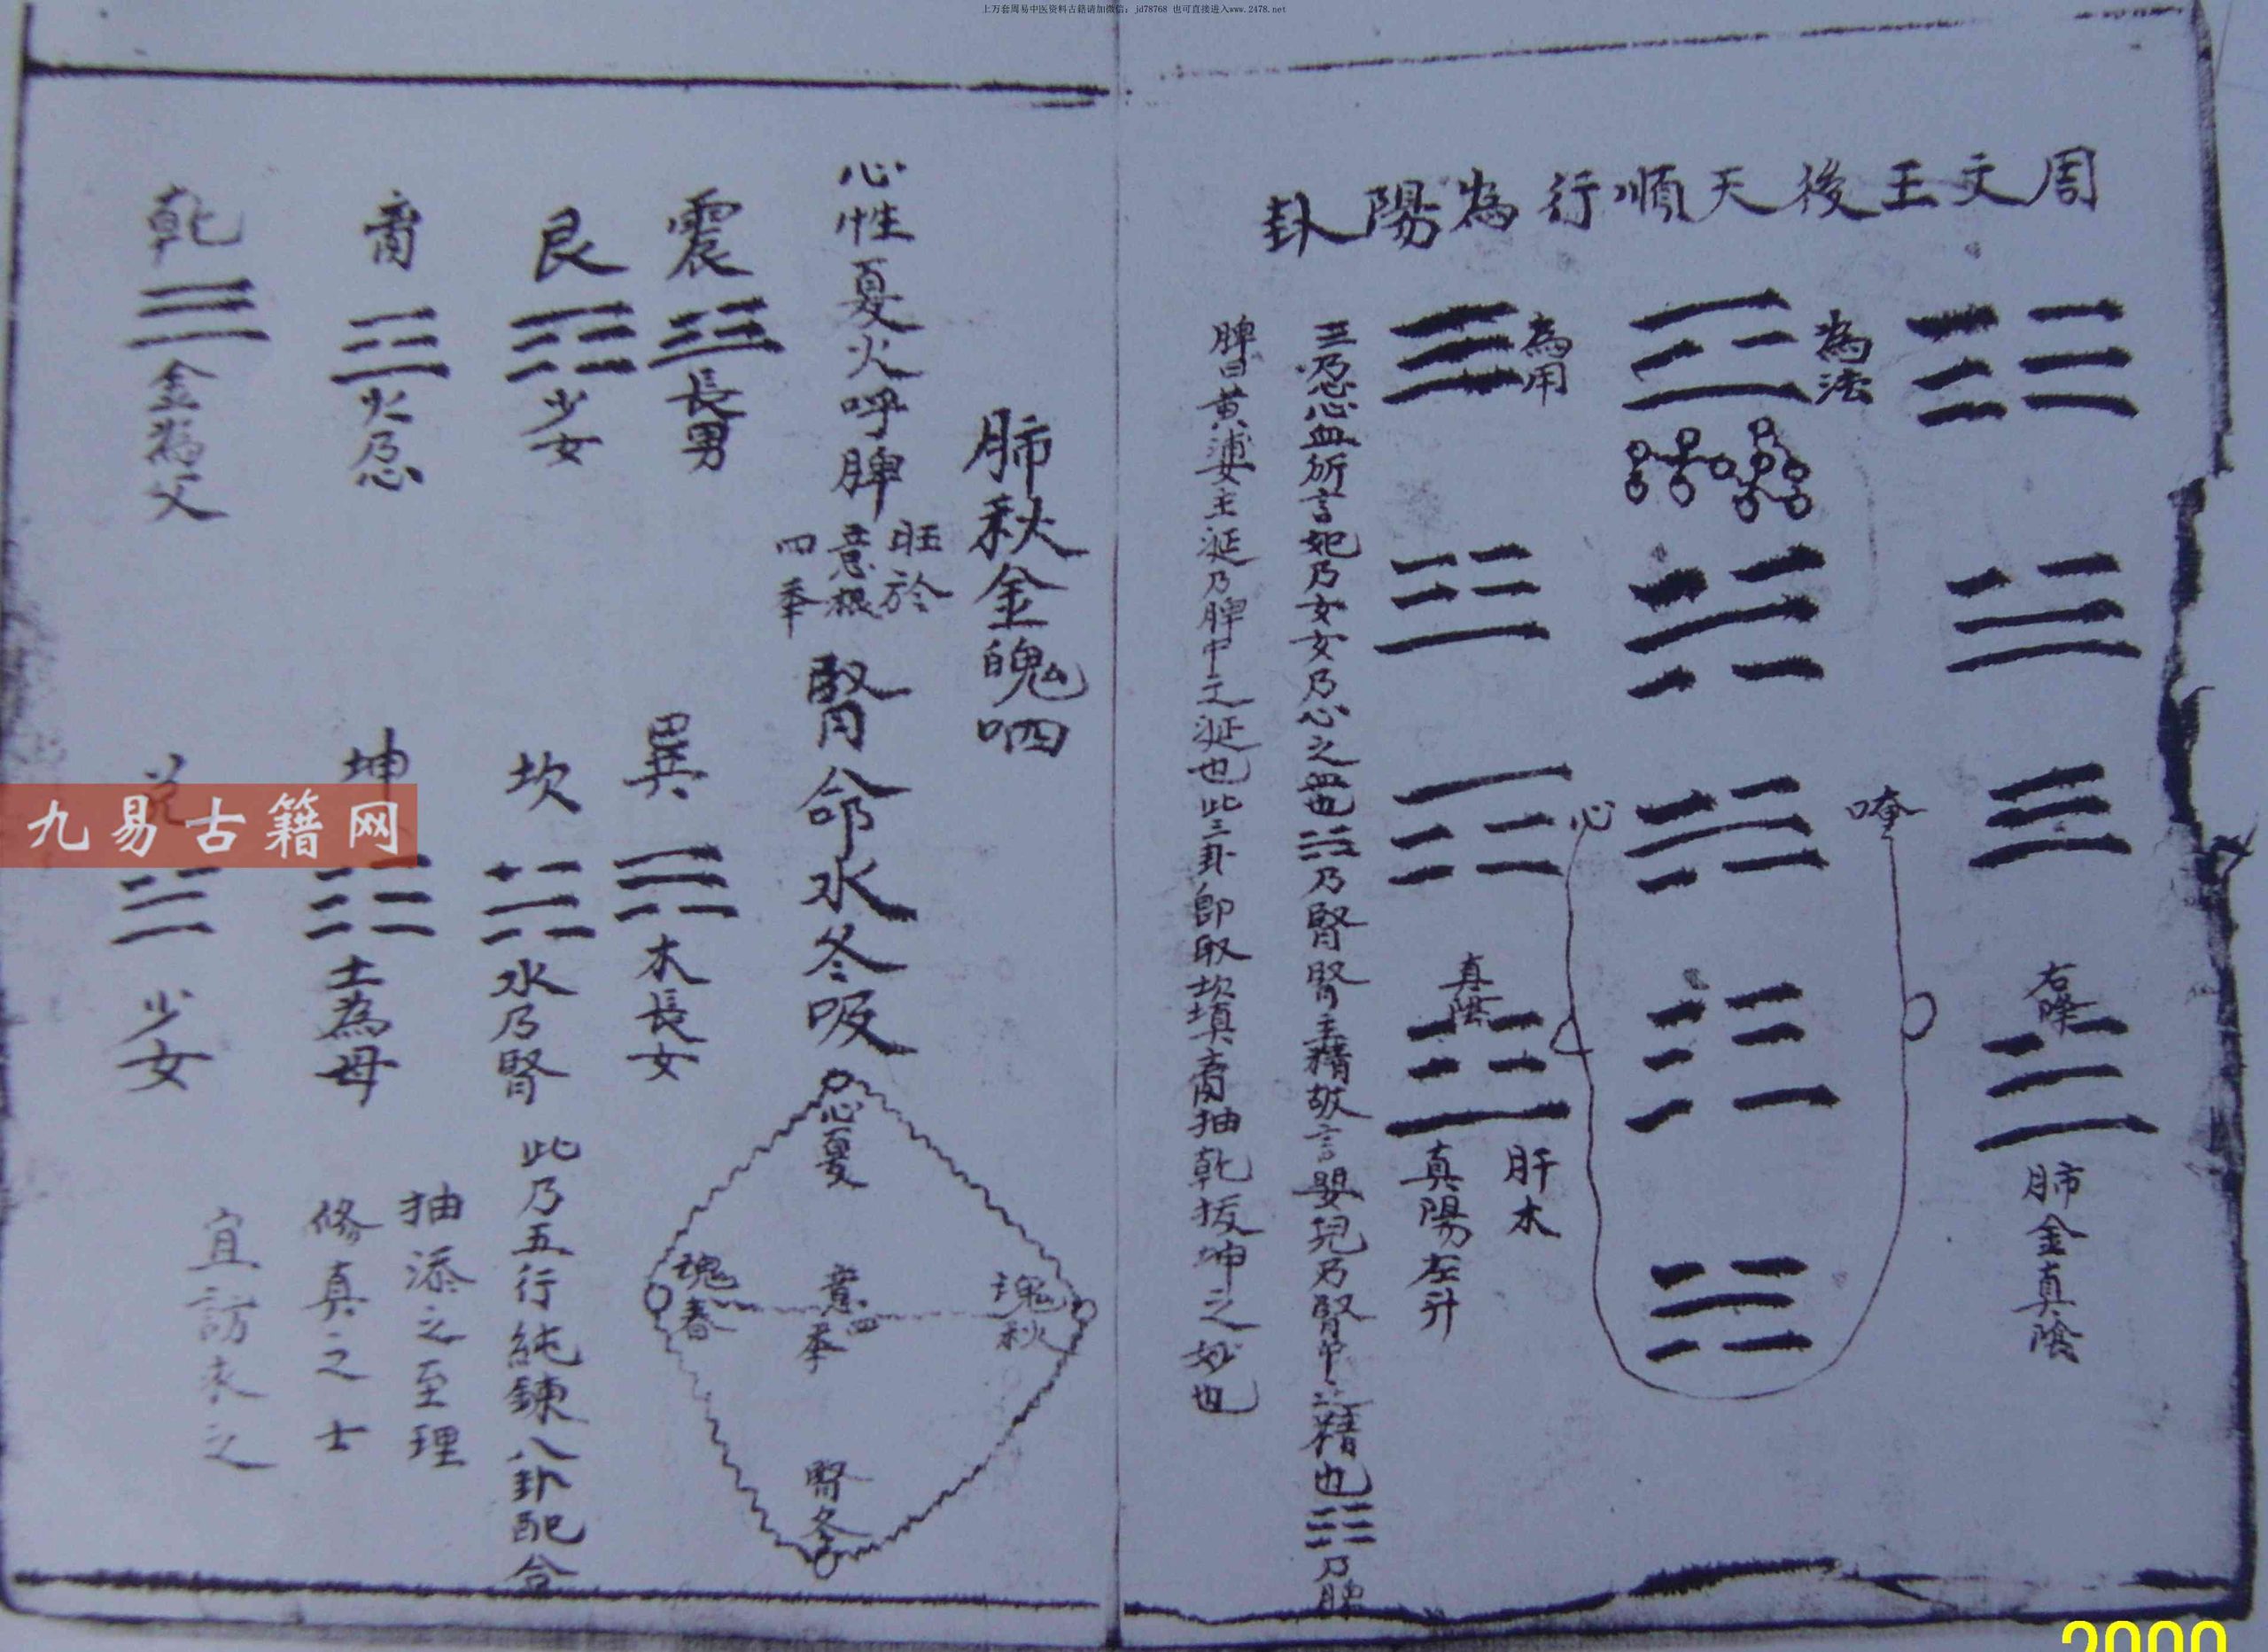 上万套周易中医资料古籍请加微信：jd78768 也可直接进入www.2478.net
周文王後天順行為陽卦
為法
為用
唵
心
右降
肺金真陰
真陰
肝木
真陽左升
☲乃心心血所言妃乃女女乃心之血也☵乃腎腎主精故言嬰兒乃腎中之精也☷乃脾
脾曰黃婆主涎乃脾中之涎也此三卦即取坎填离抽乾拔坤之妙也
肺秋金魄呬
心性夏火呼脾
旺於
意根
四季
腎命水冬吸
心夏
魂春
意四季
魂秋
腎冬
震
長男
巽
木長女
艮
少女
坎
水乃腎
此乃五行純鍊八卦配合
火乃心
坤
土為母
抽添之至理
修真之士
宜訪求之
乾
金為父
兌
少女
九易古籍网
2000